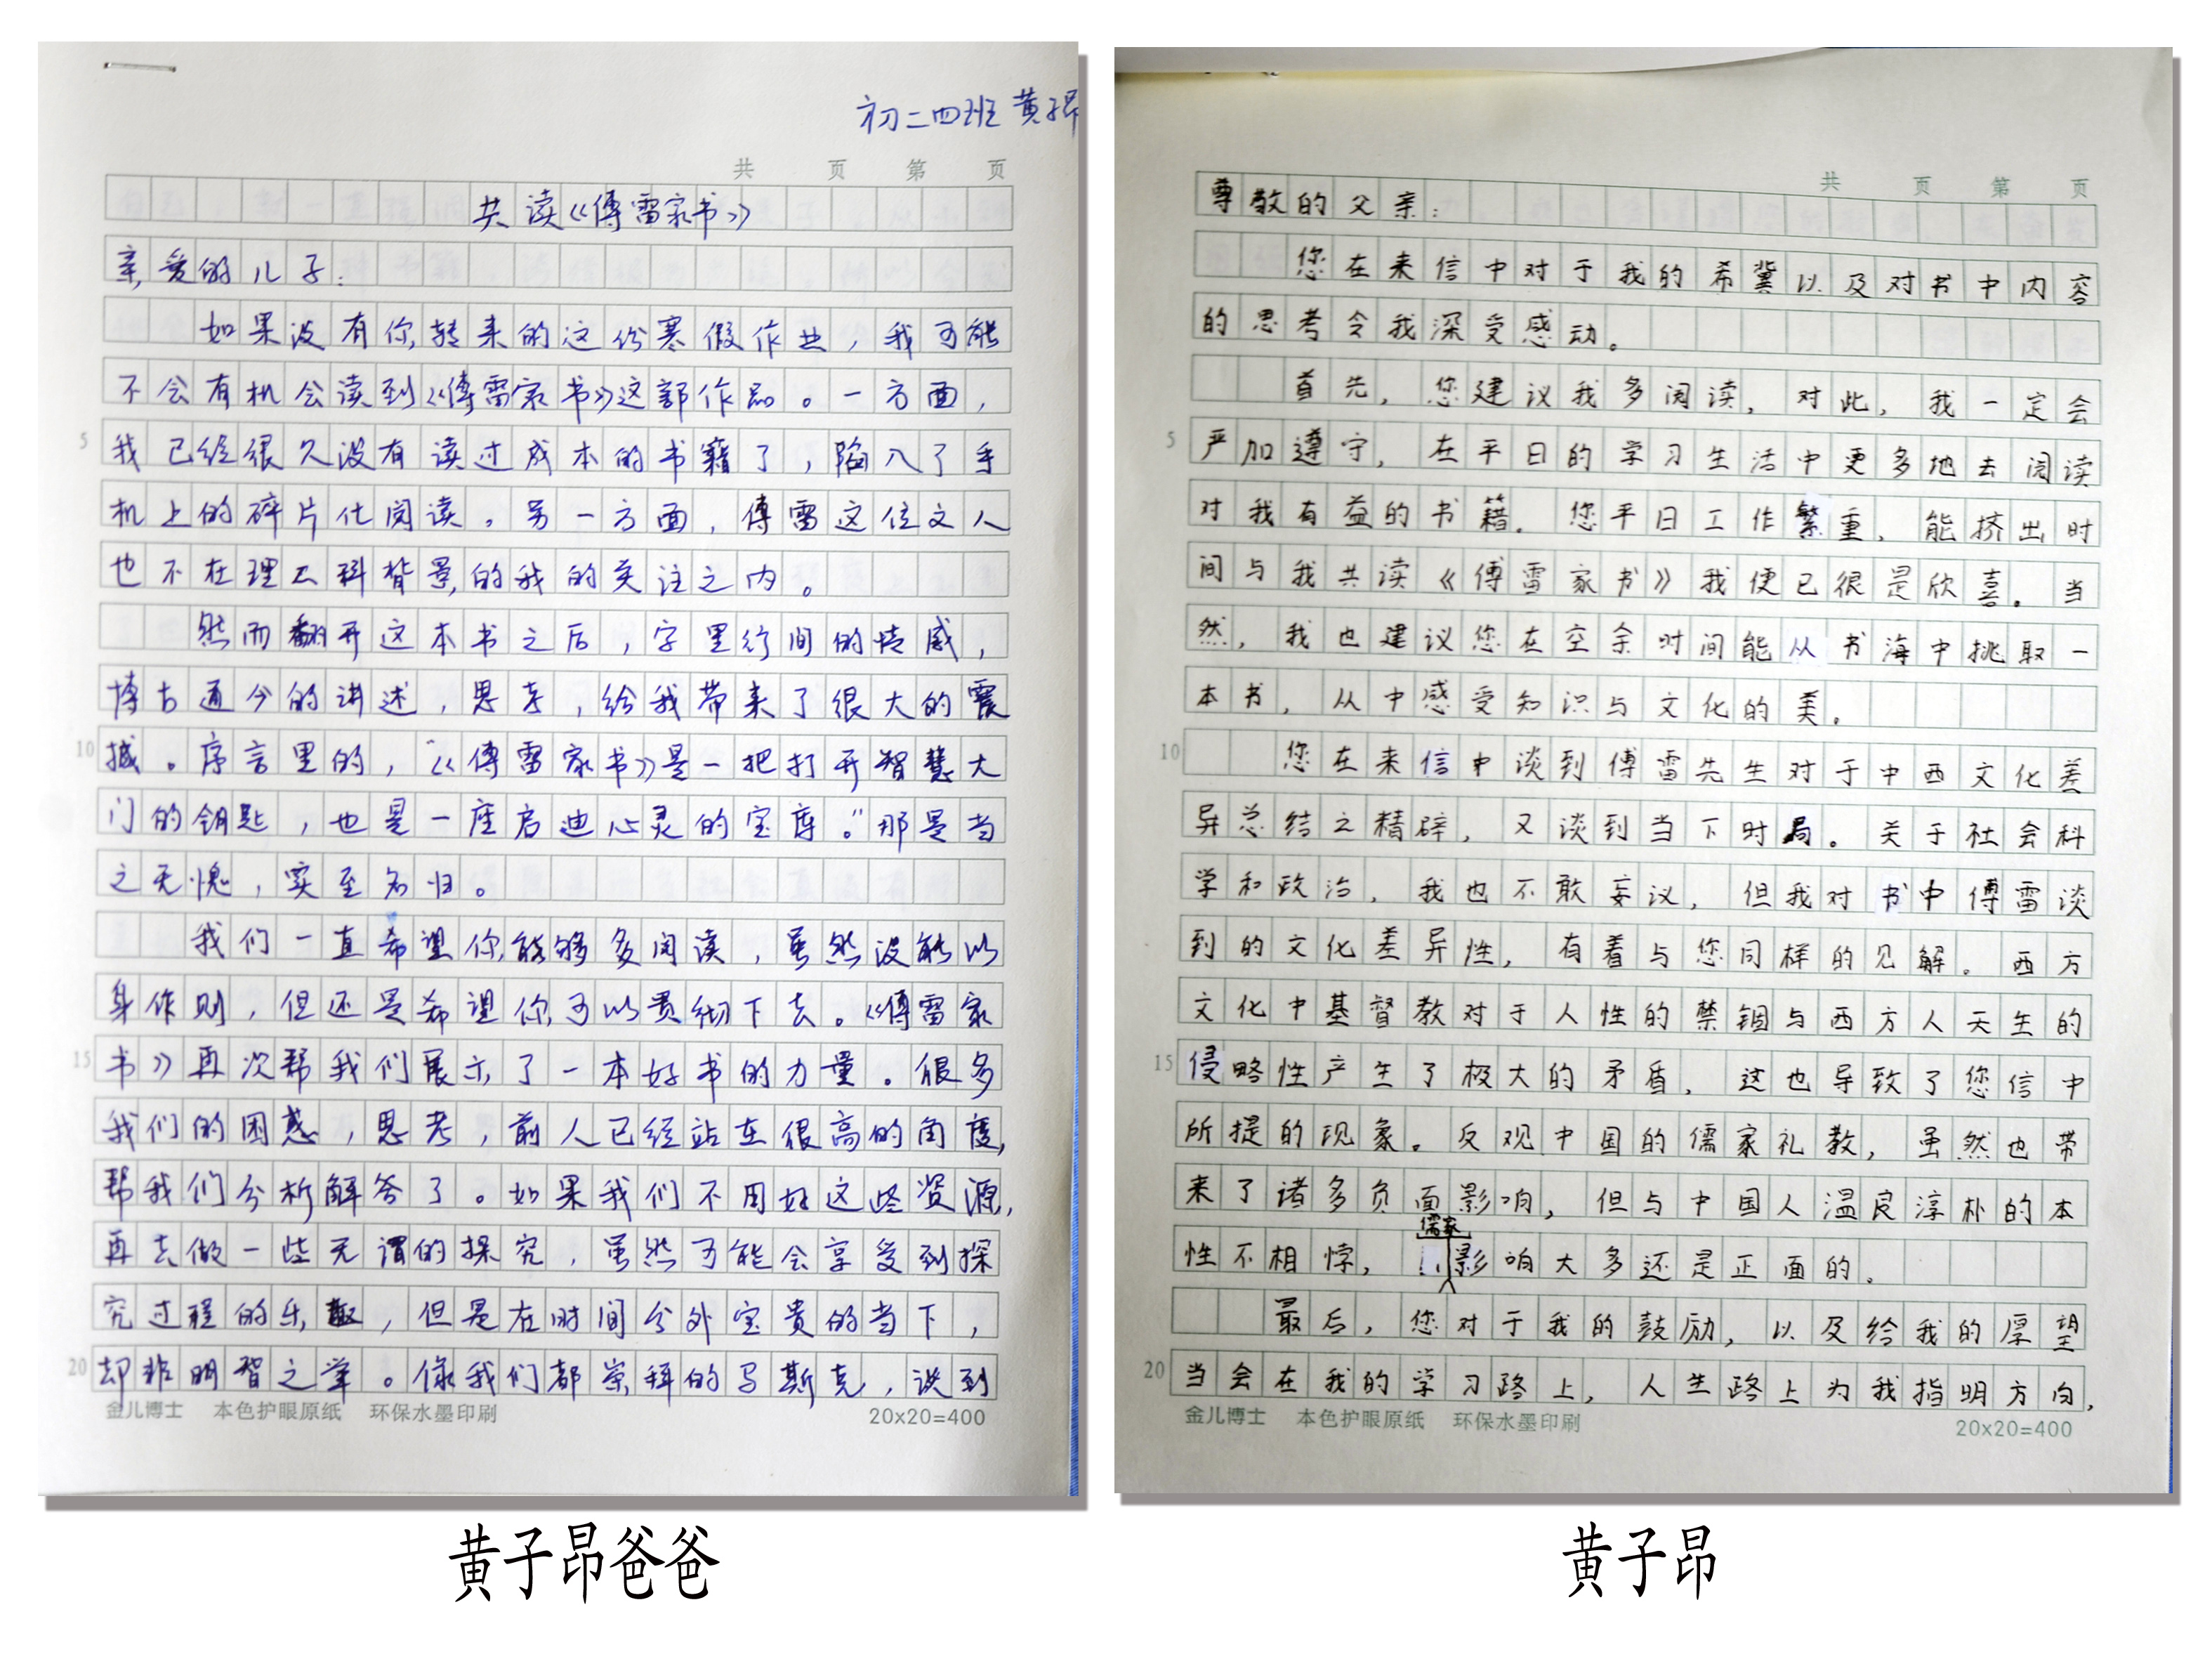 初二四班 黄子昂
共 页 第 页
共读《傅雷家书》
亲爱的儿子：
如果没有你转来的这份寒假作业，我可能
不会有机会读到《傅雷家书》这部作品。一方面，
5 我已经很久没有读过成本的书籍了，陷入了手
机上的碎片化阅读。另一方面，傅雷这位文人
也不在理工科背景的我的关注之内。
然而翻开这本书之后，字里行间的情感，
博古通今的讲述，思考，给我带来了很大的震
10 撼。序言里的，“《傅雷家书》是一把打开智慧大
门的钥匙，也是一座启迪心灵的宝库。”那是当
之无愧，实至名归。
我们一直希望你能够多阅读，虽然没能以
身作则，但还是希望你可以贯彻下去。《傅雷家
15 书》再次帮我们展示了一本好书的力量。很多
我们的困惑，思考，前人已经站在很高的角度，
帮我们分析解答了。如果我们不用好这些资源，
再去做一些无谓的探究，虽然可能会享受到探
究过程的乐趣，但是在时间分外宝贵的当下，
20 却非明智之举。像我们都崇拜的马斯克，谈到
金儿博士 本色护眼原纸 环保水墨印刷 20x20=400
黄子昂爸爸
共 页 第 页
尊敬的父亲：
您在来信中对于我的希冀以及对书中内容
的思考令我深受感动。
首先，您建议我多阅读，对此，我一定会
5 严加遵守，在平日的学习生活中更多地去阅读
对我有益的书籍。您平日工作繁重，能挤出时
间与我共读《傅雷家书》我便已很是欣喜。当
然，我也建议您在空余时间能从书海中挑取一
本书，从中感受知识与文化的美。
10 您在来信中谈到傅雷先生对于中西文化差
异总结之精辟，又谈到当下时局。关于社会科
学和政治，我也不敢妄议，但我对书中傅雷谈
到的文化差异性，有着与您同样的见解。西方
文化中基督教对于人性的禁锢与西方人天生的
15 侵略性产生了极大的矛盾，这也导致了您信中
所提的现象。反观中国的儒家礼教，虽然也带
来了诸多负面影响，但与中国人温良淳朴的本
性不相悖，儒家影响大多还是正面的。
最后，您对于我的鼓励，以及给我的厚望
20 当会在我的学习路上，人生路上为我指明方向，
金儿博士 本色护眼原纸 环保水墨印刷 20x20=400
黄子昂